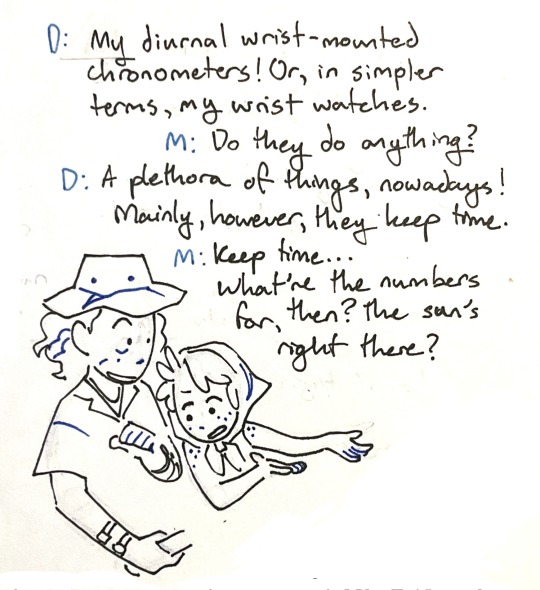 D: My diurnal wrist-mounted
chronometers! Or, in simpler
terms, my wrist watches.
M: Do they do anything?
D: A plethora of things, nowadays!
Mainly, however, they keep time.
M: Keep time...
what're the numbers
for, then? The sun's
right there?